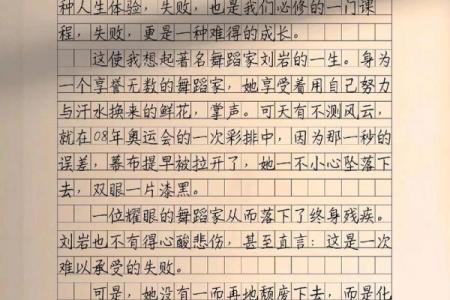 种人生体验，失败，也是我们必修的一门课
程，失败，更是一种难得的成长。
这使我想起著名舞蹈家刘岩的一生。身为
一个享誉无数的舞蹈家，她享受着用自己努力
与汗水换来的鲜花，掌声。可天有不测风云，
就在08年奥运会的一次彩排中，因为那一秒的
误差，幕布提早被拉开了，她一不小心坠落下
去，双眼一片漆黑。
一位耀眼的舞蹈家从而落下了终身残疾。
刘岩也不有得心酸悲伤，甚至直言：这是一次
难以承受的失败。
可是，她没有一而再地颓废下去，而是化